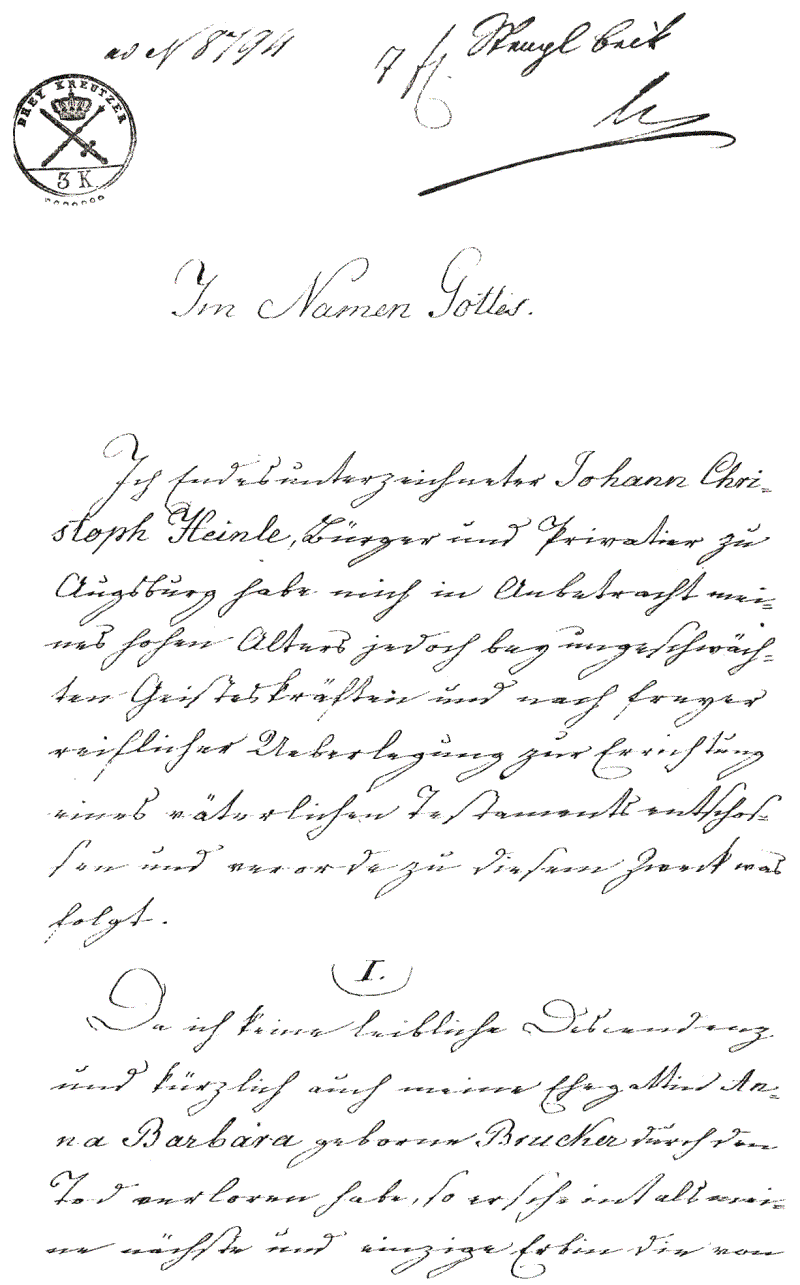 ad N 8794
7 fl. Stempl beit
DREY KREUTZER
3 K.
Im Namen Gottes.
Ich Endesunterzeichneter Johann Chri-
stoph Heinle, Bürger und Privatier zu
Augsburg habe mich in Anbetracht mei-
nes hohen Alters jedoch bey ungeschwäch-
ten Geisteskräften und nach freyer
reiflicher Ueberlegung zur Errichtung
eines väterlichen Testaments entschos-
sen und verorde zu diesem Zweck was
folgt.
I.
Da ich keine leibliche Descendenz
und kürzlich auch meine Ehegattin An-
na Barbara geborne Brucker durch den
Tod verloren habe, so erscheint als mei-
ne nächste und einzige Erbin die von